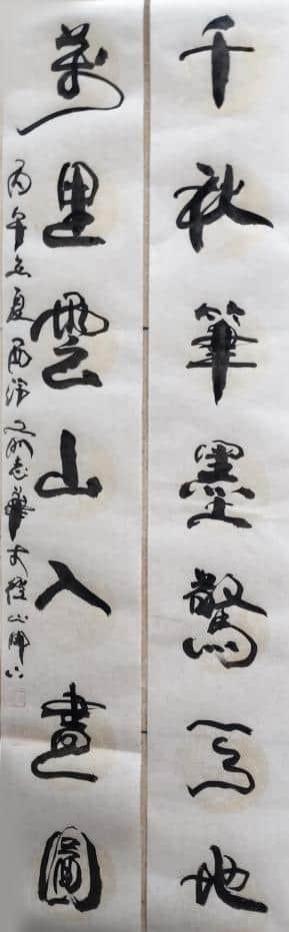 千秋筆墨驚天地
萬里雲山入畫圖
丙午之夏志華